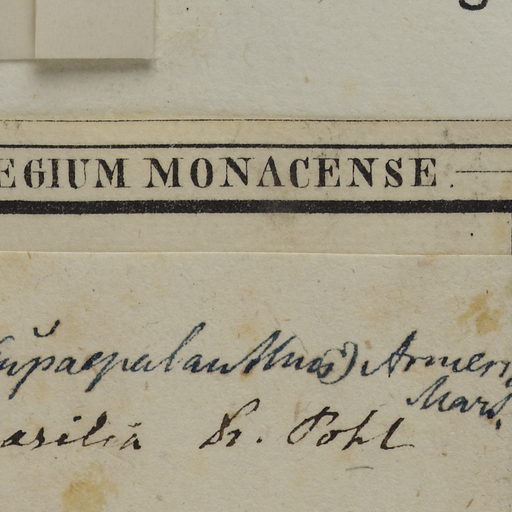 EGIUM MONACENSE.
(Eupaepalanthus) Armeri
Mart.
asilia Dr. Pohl